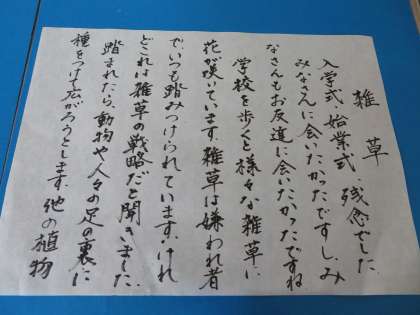 雑草
入学式、始業式、残念でした。
みなさんに会いたかったですし、み
なさんもお友達に会いたかったですね
学校を歩くと様々な雑草に
花が咲いています。雑草は嫌われ者
で、いつも踏みつけられています。けれ
どこれは雑草の戦略だと聞きました。
踏まれたら、動物や人々の足の裏に
種をつけて広がろうとします。他の植物